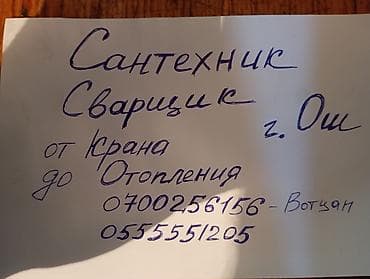 Сантехник
Сварщик
г. Ош
от Крана
до Отопления
0700256156 - Вотцап
0555551205